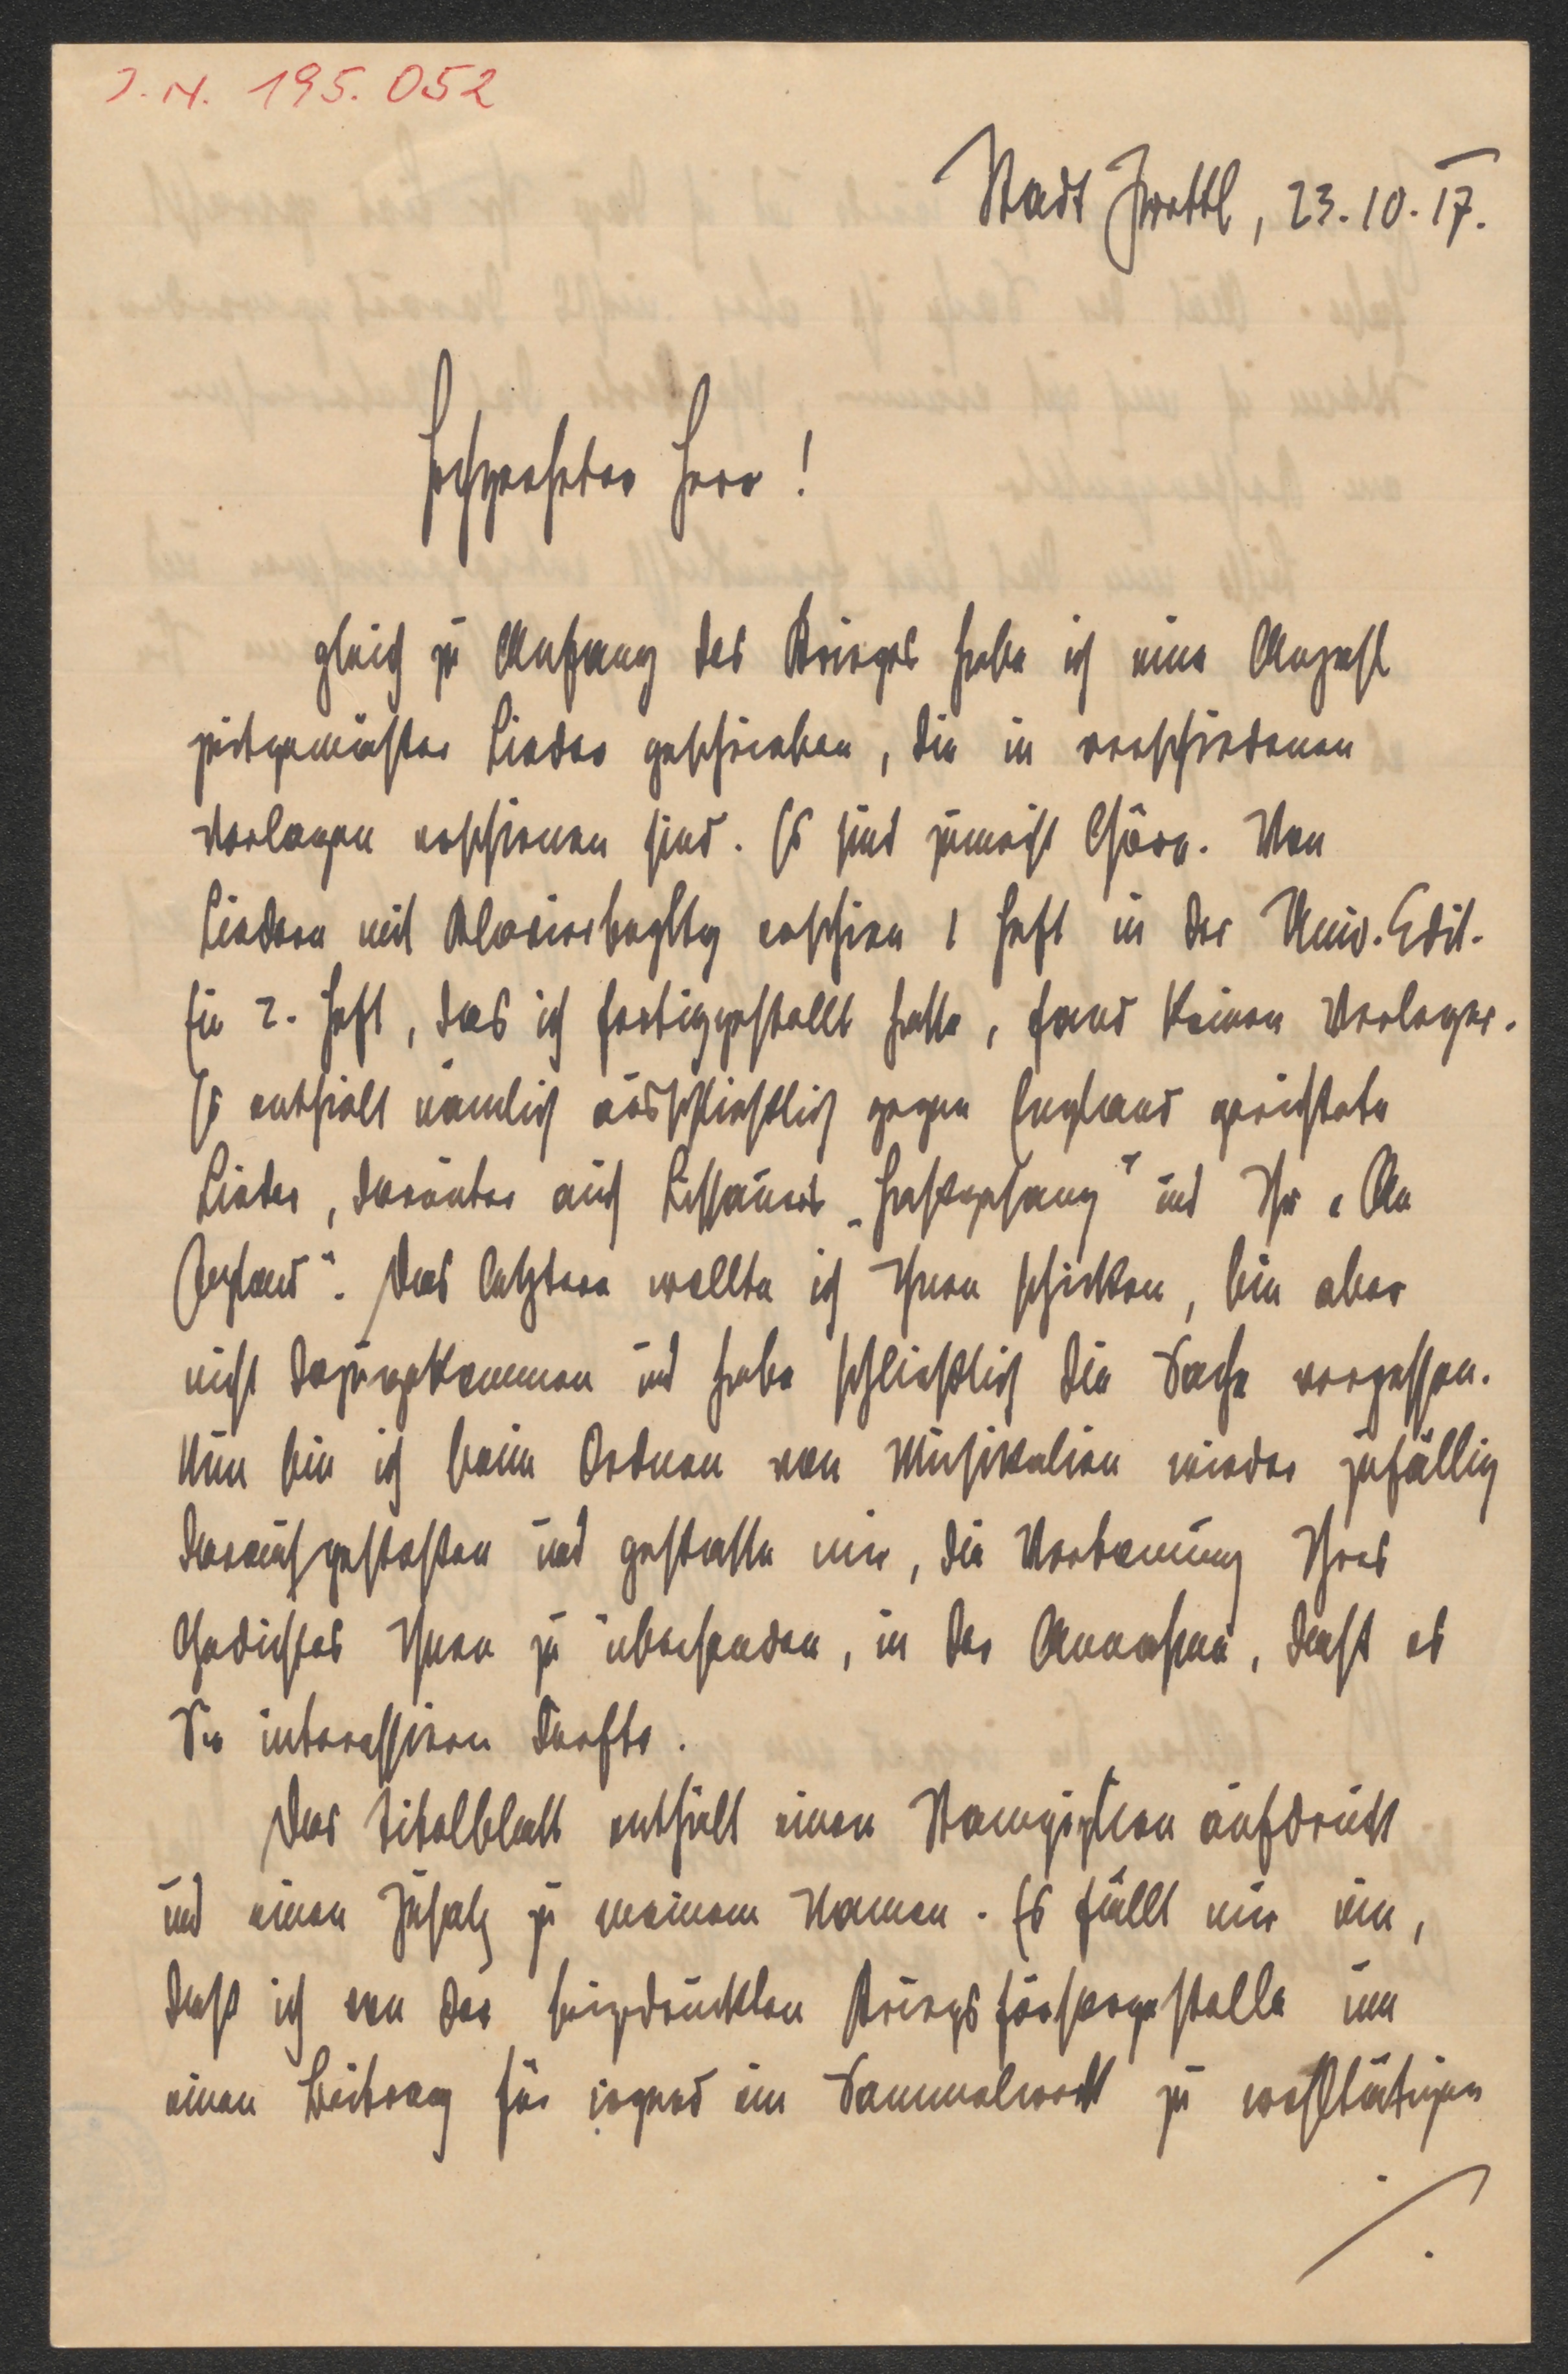 J. N. 195.052
Stadt Zwettl, 23.10.17.
Hochgeehrter Herr!
gleich zu Anfang des Krieges habe ich eine Anzahl
zeitgemäßer Lieder geschrieben, die in verschiedenen
Verlagen erschienen sind. Es sind zumeist Chöre. Von
Liedern mit Klavierbegltg erschien 1 Heft in der Univ. Edit.
Ein 2. Heft, das ich fertiggestellt hatte, fand keinen Verleger.
Es enthielt nämlich ausschließlich gegen England gerichtete
Lieder, darunter auch Lissauers „Haßgesang" und Ihr „An
England". Das letztere wollte ich Ihnen schicken, bin aber
nicht dazugekommen und habe schließlich die Sache vergessen.
Nun bin ich beim Ordnen von Musikalien wieder zufällig
daraufgestoßen und gestatte mir, die Vertonung Ihres
Gedichtes Ihnen zu übersenden, in der Annahme, daß es
Sie interessieren dürfte.
Das Titelblatt enthält einen Stampiglienaufdruck
und einen Zusatz zu meinem Namen. Es fällt mir ein,
daß ich von der Kriegsfürsorgestelle um
einen Beitrag für irgend ein Sammelwerk zu wohltätigen
./.